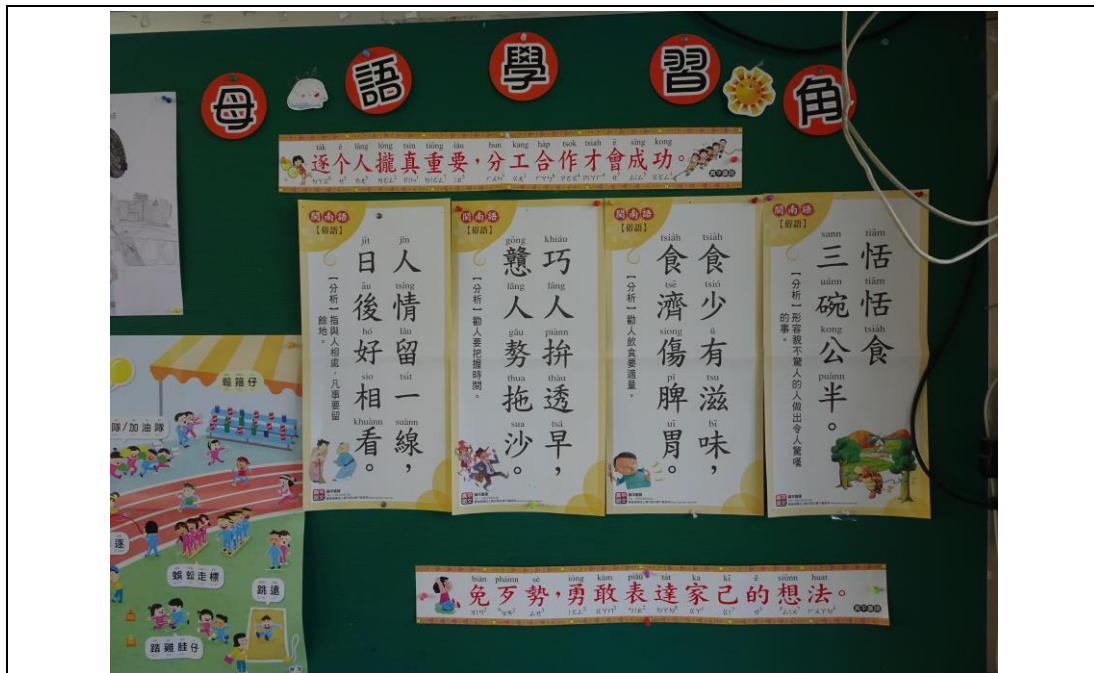 母語學習角
ta̍k ê lâng lóng tsin tiōng iàu hun kang ha̍p tsok tsiah ē sîng kong
逐个人攏真重要，分工合作才會成功。
閩南語
【俗語】
jîn tsîng lâu tsi̍t suànn
人情留一線，
ji̍t āu hó sio khuànn
日後好相看。
【分析】指與人相處，凡事要留
餘地。
閩南語
【俗語】
khiáu lâng piànn thàu tsá
巧人拚透早，
gōng lâng gâu thua sua
戇人勢拖沙。
【分析】勸人要把握時間。
閩南語
【俗語】
tsia̍h tsió ū tsu bī
食少有滋味，
tsia̍h tsē siong pî uī
食濟傷脾胃。
【分析】勸人飲食要適量。
閩南語
【俗語】
tiām tiām tsia̍h
恬恬食
sann uánn kong puànn
三碗公半。
【分析】形容貌不驚人的人做出令人驚嘆
的事。
輾箍仔
隊/加油隊
逐
蜈蚣走標
跳遠
踏雞胿仔
bián pháinn sè ióng kám piáu ta̍t ka kī ê siūnn huat
免歹勢，勇敢表達家己的想法。